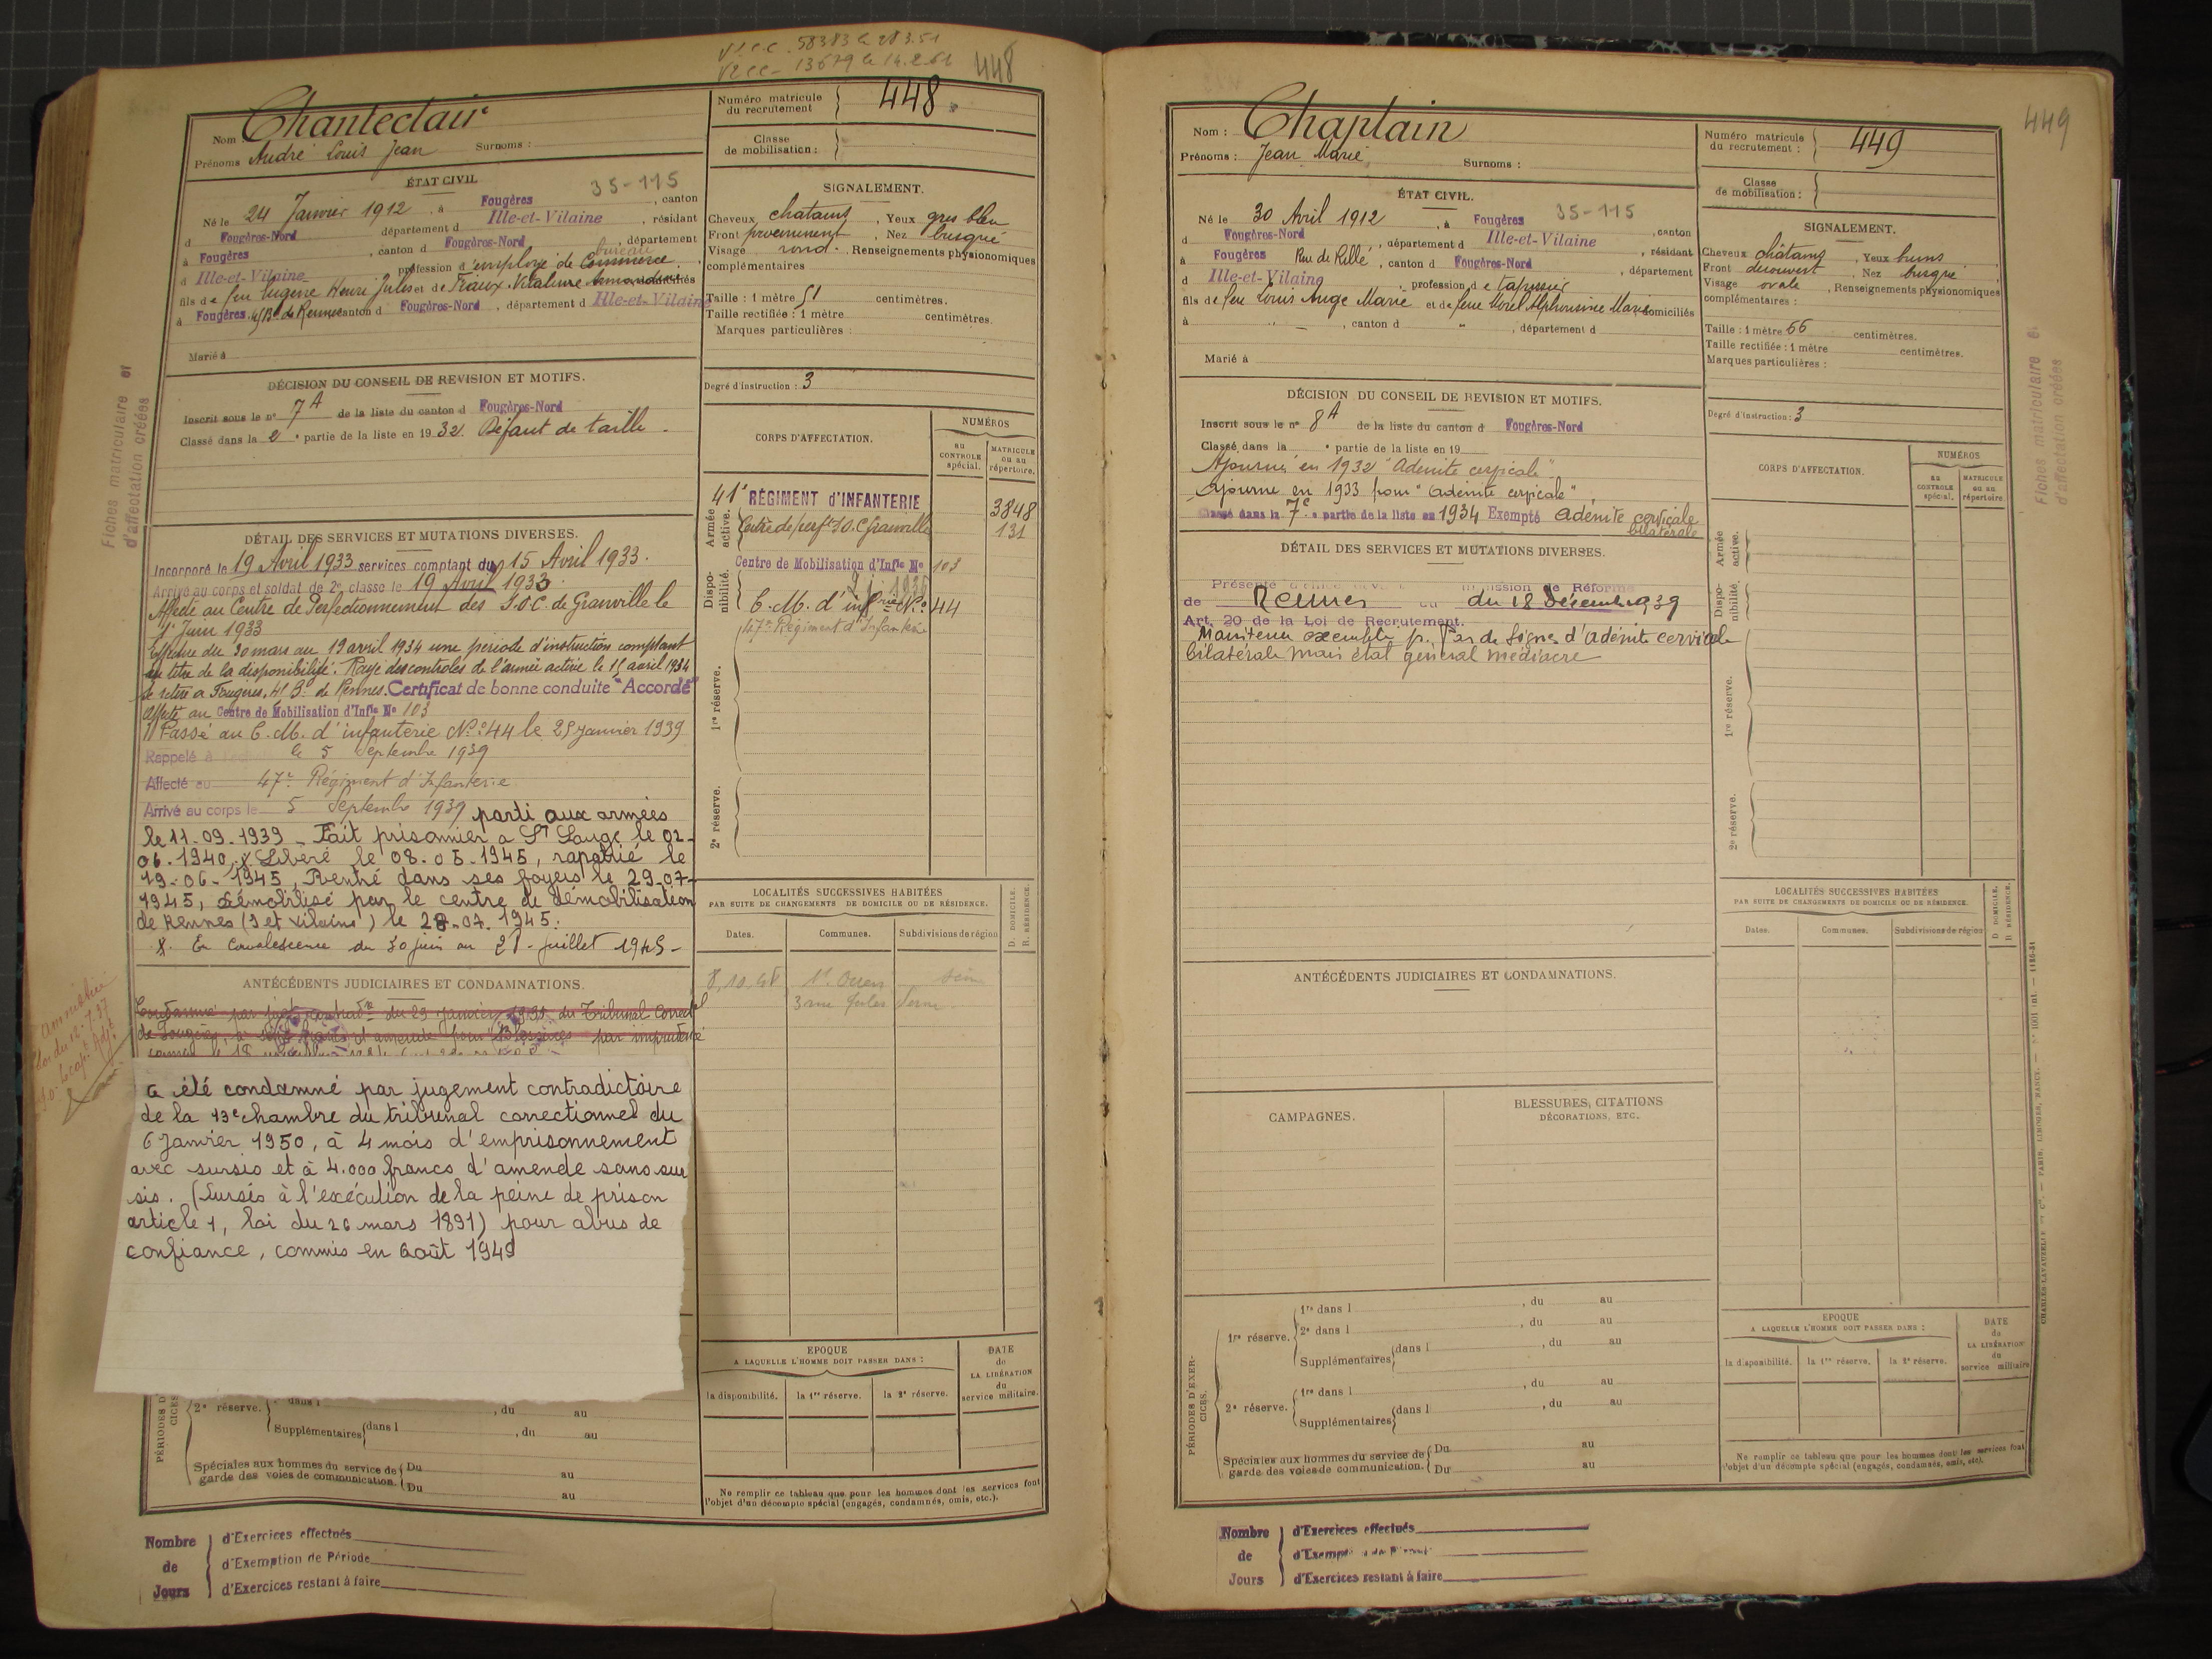 V2CC. 58383 le 28.3.51
V2CC- 13679 le 14.2.61
448
Nom Chanteclair
Prénoms André Louis Jean Surnoms :
Numéro matricule du recrutement 448
Classe de mobilisation :
ÉTAT CIVIL
35-115
Né le 24 Janvier 1912, à Fougères, canton
d Fougères-Nord département d Ille-et-Vilaine, résidant
à Fougères, canton d Fougères-Nord, département
bureau
d Ille-et-Vilaine profession d'employé de Commerce
fils de feu Eugène Henri Jules et de Fraux Vitaline domiciliés
à Fougères, 41 Bd de Rennes canton d Fougères-Nord, département d Ille-et-Vilaine
Marié à
SIGNALEMENT.
Cheveux chatains, Yeux gris bleu
Front proéminent, Nez busqué
Visage rond. Renseignements physionomiques
complémentaires
Taille : 1 mètre 51 centimètres.
Taille rectifiée : 1 mètre centimètres.
Marques particulières :
Degré d'instruction : 3
DÉCISION DU CONSEIL DE REVISION ET MOTIFS.
Inscrit sous le n° 7A de la liste du canton d Fougères-Nord
Classé dans la 2e partie de la liste en 1932. Défaut de taille.
Fiches matriculaire et
d'affectation créées
CORPS D'AFFECTATION.
NUMÉROS
au CONTROLE spécial.
MATRICULE ou au répertoire.
Armée active.
41e RÉGIMENT d'INFANTERIE 3848
Centre de perft S.O.C Granville 131
Disponibilité.
Centre de Mobilisation d'Infie No 103
C. M. d'infrie No 44
47e Régiment d'Infanterie
1re réserve.
2e réserve.
DÉTAIL DES SERVICES ET MUTATIONS DIVERSES.
Incorporé le 19 Avril 1933 services comptant du 15 Avril 1933.
Arrivé au corps et soldat de 2e classe le 19 Avril 1933.
Affecté au Centre de Perfectionnement des S.O.C. de Granville le
1er Juin 1933
Effectue du 30 mars au 19 avril 1934 une période d'instruction comptant
au titre de la disponibilité. Rayé des controles de l'armée active le 15 avril 1934
se retire à Fougères, 41 Bd de Rennes. Certificat de bonne conduite "Accordé"
Affecté au Centre de Mobilisation d'Infie No 103
Passé au C. M. d'infanterie No 44 le 25 Janvier 1939
Rappelé à le 5 Septembre 1939
Affecté au 47e Régiment d'Infanterie
Arrivé au corps le 5 Septembre 1939 parti aux armées
le 11-09-1939 - Fait prisonnier a St Sauge le 02-
06.1940, x Libéré le 08.05.1945, rapatrié le
19-06-1945, Rentré dans ses foyers le 29-07-
1945, démobilisé par le centre de démobilisation
de Rennes (I et Vilaine) le 28.07.1945.
x. En Convalescence du 30 juin au 28 juillet 1945-
LOCALITÉS SUCCESSIVES HABITÉES
PAR SUITE DE CHANGEMENTS DE DOMICILE OU DE RÉSIDENCE.
D. DOMICILE.
R. RÉSIDENCE.
Dates.
Communes.
Subdivisions de région
8.10.48 St Ouen Seine
3 rue Jules Verne
ANTÉCÉDENTS JUDICIAIRES ET CONDAMNATIONS.
Condamné par jugt contradre du 29 janvier du Tribunal Correctel
de Fougères, à francs d'amende pour Blessures par imprudence
a été condamné par jugement contradictoire
de la 13e chambre du tribunal correctionnel du
6 Janvier 1950, à 4 mois d'emprisonnement
avec sursis et à 4.000 francs d'amende sans sur
sis. (Sursis à l'exécution de la peine de prison
article 1, loi du 26 mars 1891) pour abus de
confiance, commis en août 1949
Amnistié
loi du 12.7.37
PÉRIODES D CICES
2e réserve. dans l , du au
Supplémentaires dans l , du au
Spéciales aux hommes du service de garde des voies de communication. Du au
Du au
EPOQUE
A LAQUELLE L'HOMME DOIT PASSER DANS :
la disponibilité. la 1re réserve. la 2e réserve.
DATE de LA LIBÉRATION du service militaire.
Ne remplir ce tableau que pour les hommes dont les services font
l'objet d'un décompte spécial (engagés, condamnés, omis, etc.).
Nombre de Jours
d'Exercices effectués
d'Exemption de Période
d'Exercices restant à faire
449
Nom : Chaplain
Prénoms : Jean Marie Surnoms :
Numéro matricule du recrutement : 449
Classe de mobilisation :
ÉTAT CIVIL.
Né le 30 Avril 1912, à Fougères 35-115
d Fougères-Nord, département d Ille-et-Vilaine, canton
à Fougères Rue de Rillé, canton d Fougères-Nord, résidant
d Ille-et-Vilaine, profession de tapissier, département
fils de feu Louis Ange Marie et de feue Morel Alphonsine Marie domiciliés
à " - , canton d " , département d
Marié à
SIGNALEMENT.
Cheveux châtains, Yeux bruns
Front découvert, Nez busqué
Visage ovale, Renseignements physionomiques
complémentaires :
Taille : 1 mètre 66 centimètres.
Taille rectifiée : 1 mètre centimètres.
Marques particulières :
Degré d'instruction : 3
DÉCISION DU CONSEIL DE REVISION ET MOTIFS.
Inscrit sous le n° 8A de la liste du canton d Fougères-Nord
Classé dans la e partie de la liste en 19
Ajourné en 1932 "Adénite cervicale"
Ajourné en 1933 pour "adénite cervicale"
Classé dans la 7e partie de la liste en 1934 Exempté adénite cervicale
bilatérale
Fiches matriculaire et
d'affectation créées
CORPS D'AFFECTATION.
NUMÉROS
au CONTROLE spécial.
MATRICULE ou au répertoire.
Armée active.
Disponibilité.
1re réserve.
2e réserve.
DÉTAIL DES SERVICES ET MUTATIONS DIVERSES.
Présenté d'office Commission de Réforme
de Rennes du 18 Décemb 1939
Art. 20 de la Loi de Recrutement.
Maintenu exempté p. Pas de signes d'adénite cervicale
bilatérale mais état général médiocre
LOCALITÉS SUCCESSIVES HABITÉES
PAR SUITE DE CHANGEMENTS DE DOMICILE OU DE RÉSIDENCE.
D. DOMICILE.
R. RÉSIDENCE.
Dates.
Communes.
Subdivisions de région
ANTÉCÉDENTS JUDICIAIRES ET CONDAMNATIONS.
CAMPAGNES.
BLESSURES, CITATIONS
DÉCORATIONS, ETC.
PÉRIODES D'EXERCICES.
1re réserve. 1re dans l , du au
2e dans l , du au
Supplémentaires dans l , du au
2e réserve. 1re dans l , du au
Supplémentaires dans l , du au
Spéciales aux hommes du service de garde des voies de communication. Du au
Du au
EPOQUE
A LAQUELLE L'HOMME DOIT PASSER DANS :
la disponibilité. la 1re réserve. la 2e réserve.
DATE de LA LIBÉRATION du service militaire
Ne remplir ce tableau que pour les hommes dont les services font
l'objet d'un décompte spécial (engagés, condamnés, omis, etc).
CHARLES-LAVAUZELLE ET Cie. — PARIS, LIMOGES, NANCY.
Nombre de Jours
d'Exercices effectués
d'Exemption de Période
d'Exercices restant à faire